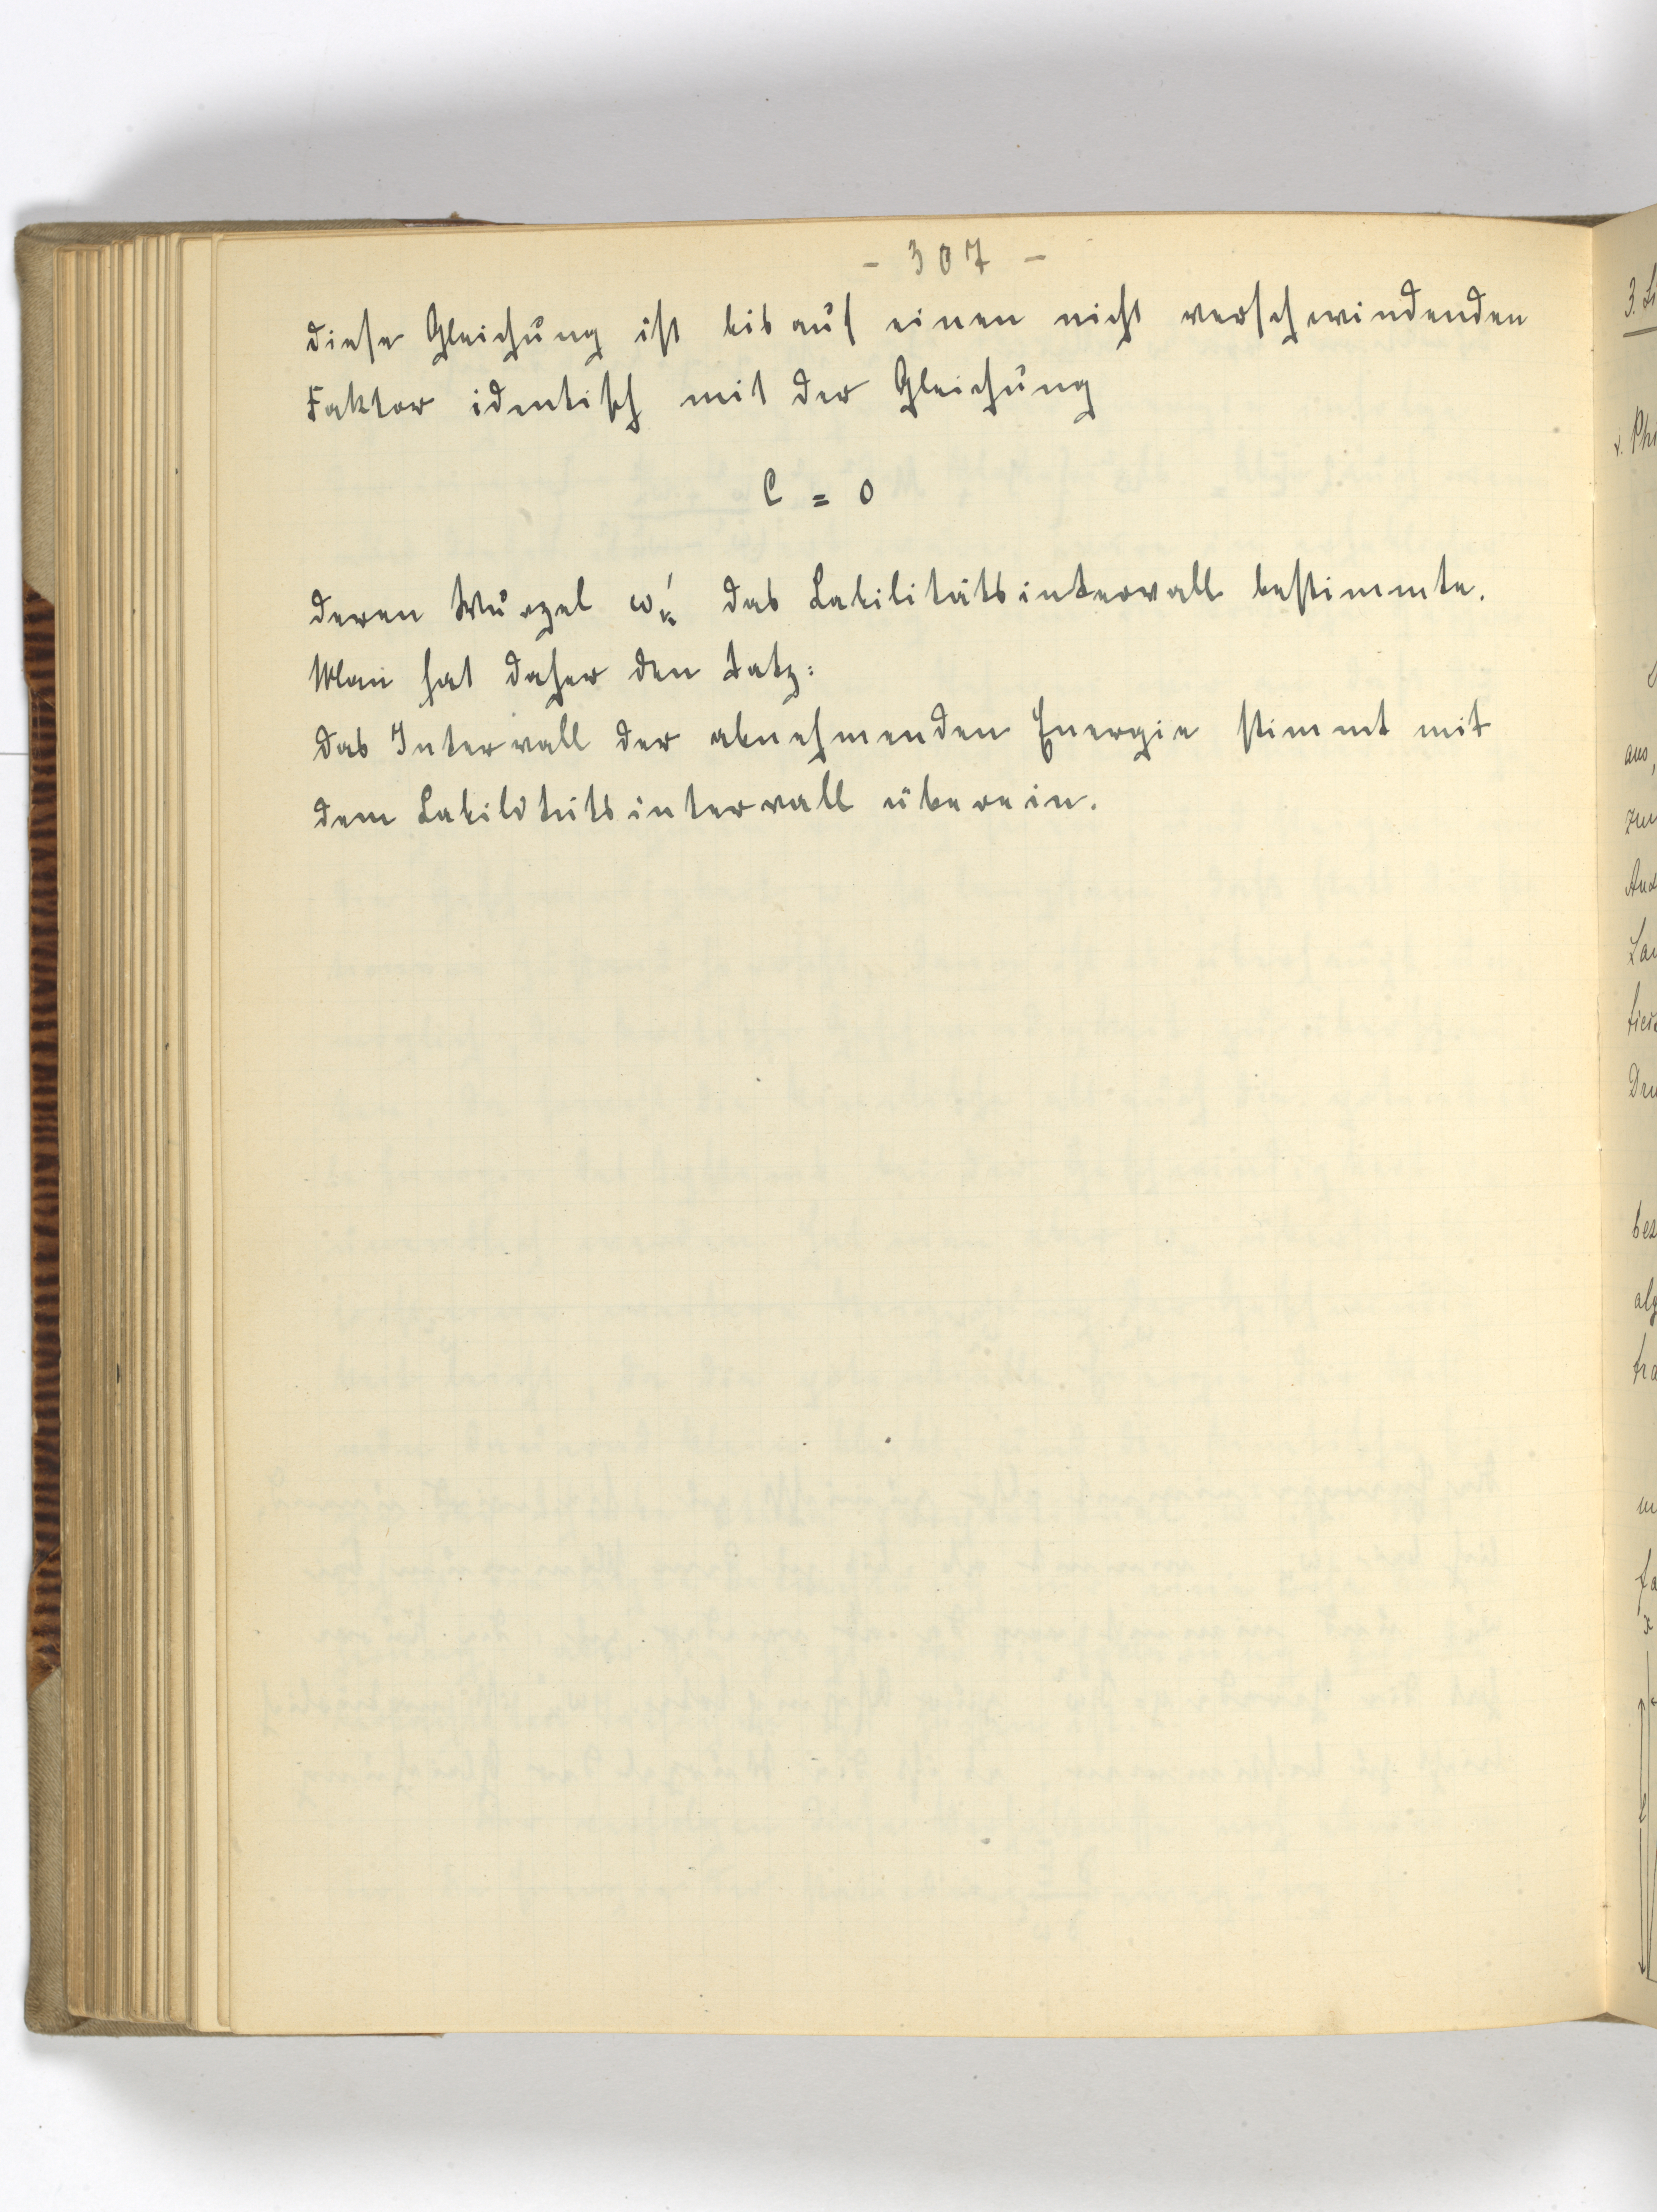 - 307 -
diese Gleichung ist bis auf einen nicht verschwindenden
Faktor identisch mit der Gleichung
C = 0
deren Wurzel ω'ₖ das Labilitätsintervall bestimmte.
Man hat daher den Satz:
das Intervall der abnehmenden Energie stimmt mit
dem Labilitätsintervall überein.
3. Li
v. Phi
aus,
zu
And
Lau
Dru
bes
alg
tra